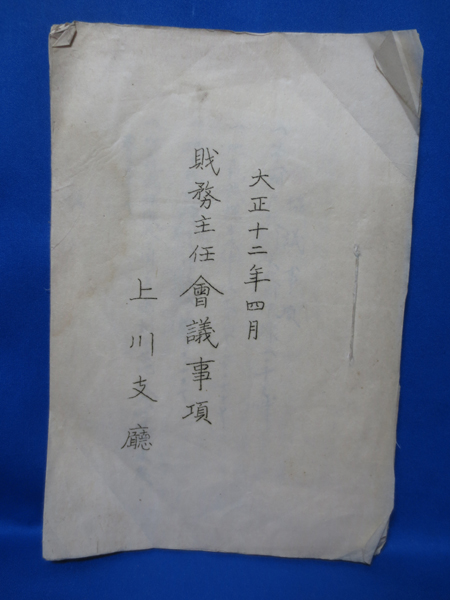 大正十二年四月
財務主任會議事項
上川支廳